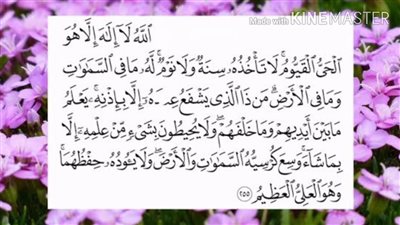 Made with KINEMASTER
ٱللَّهُ لَآ إِلَٰهَ إِلَّا هُوَ
ٱلْحَىُّ ٱلْقَيُّومُ ۚ لَا تَأْخُذُهُۥ سِنَةٌ وَلَا نَوْمٌ ۚ لَّهُۥ مَا فِى ٱلسَّمَٰوَٰتِ
وَمَا فِى ٱلْأَرْضِ ۗ مَن ذَا ٱلَّذِى يَشْفَعُ عِندَهُۥٓ إِلَّا بِإِذْنِهِۦ ۚ يَعْلَمُ
مَا بَيْنَ أَيْدِيهِمْ وَمَا خَلْفَهُمْ ۖ وَلَا يُحِيطُونَ بِشَىْءٍ مِّنْ عِلْمِهِۦٓ إِلَّا
بِمَا شَآءَ ۚ وَسِعَ كُرْسِيُّهُ ٱلسَّمَٰوَٰتِ وَٱلْأَرْضَ ۖ وَلَا يَـُٔودُهُۥ حِفْظُهُمَا ۚ
وَهُوَ ٱلْعَلِىُّ ٱلْعَظِيمُ ٢٥٥